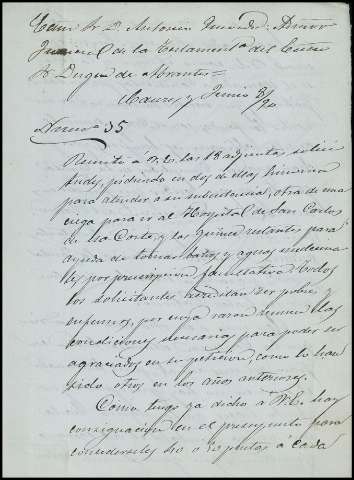 Excmo Sr D. Antonio Admor
Judicial de la Testamentª del Excmo
Sr Duque de Abrantes =
Junio 8/90
Num º 35
Remito á V.E. las 18 adjuntas solici
tudes, pidiendo en dos de ellas limosna
para atender a su subsistencia, otra de una
ciega para ir al Hospital de San Carlos
de esa Corte, y las quince restantes para
ayuda de tomar baños y aguas medicina
les por prescripcion facultativa. Todos
los solicitantes acreditan ser pobres y
enfermos, por cuya razon reunen las
condiciones necesarias para poder ser
agraciados en su peticion, como lo han
sido otros en los años anteriores.
Como tengo ya dicho á V.E. hay
consignacion en el presupuesto para
considerarles 40 o 50 pesetas á cada